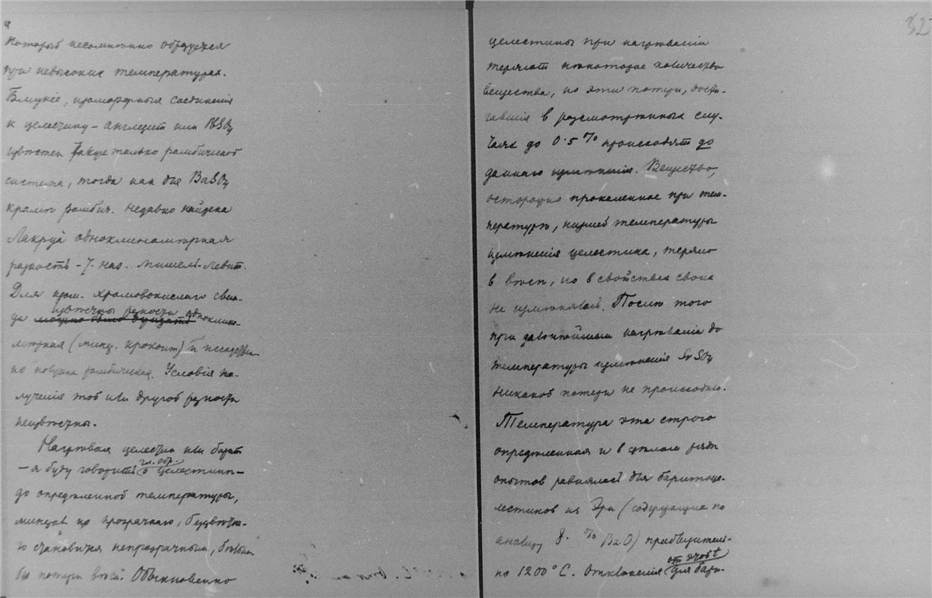 который несомненно образуется
при невысоких температурах.
Близкие, изоморфныя соединения
к целестину – англезит или PbSO4
известен также только ромбической
системы, тогда как для BaSO4
кроме ромбич. недавно найдена
Лакруа одноклиномерная
разность – т. наз. Мишель-левит.
Для хромовокислаго свин-
ца известны разности одноклино-
мерная (минер. крокоит) и
но ромбическая. Условия по-
лучения той или другой разности
неизвестны.
Нагревая целестин или барит
– я буду говорить гл. обр. о целестине –
до определенной температуры,
минерал из прозрачнаго, безцветна-
го становится непрозрачным, белым
без потери в весе. Обыкновенно
32
целестины при нагревании
теряют некоторое количество
вещества, но эти потери, дости-
гавшия в разсмотренных слу-
чаях до 0.5% происходят до
даннаго изменения. Вещество,
осторожно прокаленное при тем-
пературе, низшей температуры
изменения целестина, теряло
в весе, но в свойствах своих
не изменялось. После того
при дальнейшем нагревании до
температуры изменения SrSO4
никакой потери не происходило.
Температура эта строго
определенная и в целом ряде
опытов равнялась для баритоце-
лестинов из Эри (содержащих по
анализу 8. % BaO) приблизитель-
но 1200°C. Отклонения от этой t для бари-